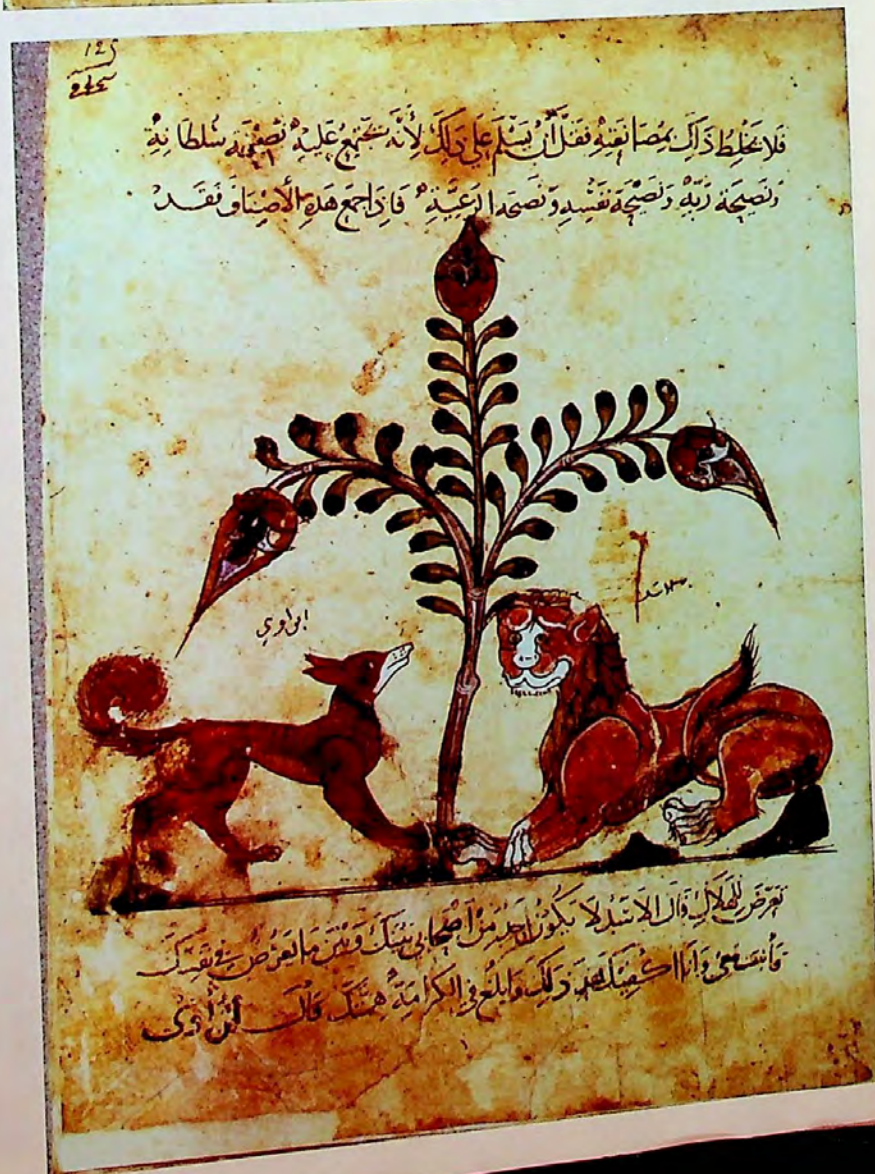 125
فلا يخلط ذاك بمصانعة فقل أن يسلم على ذلك لأنه يجتمع عليه سلطانه
ونصيحة ربه ونصيحة نفسه ونصحه الرعية فإذا جمع هذه الأصناف فقد
ابن اوي
تعرض للهلاك قال الأسد لا يكون أحد من أصحابي بينك وبين ما تعرض في نفسك
فأنت معي وأنا أكفيك ذلك وأبلغ في الكرامة همتك قال ابن أوى